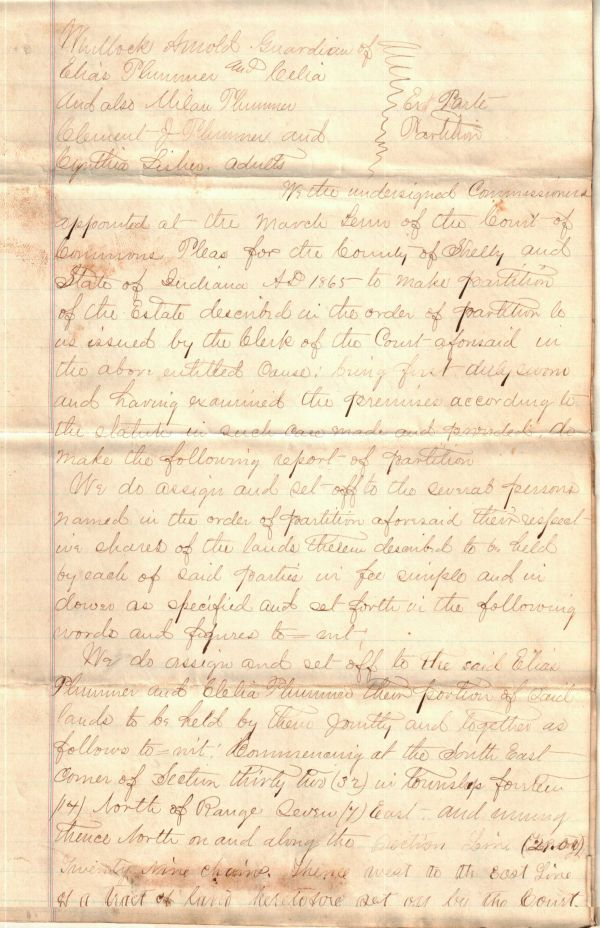 Whillock Arnold Guardian of
Elias Plummer and Celia
And also Milan Plummer
Ex Parte
Clement J Plummer and
Partition
Cynthia Fisher. adults
We the undersigned Commissioners
appointed at the March Term of the Court of
Commons Pleas for the County of Shelby and
State of Indiana AD 1865 to make partition
of the Estate described in the order of partition to
us issued by the Clerk of the Court aforesaid in
the above entitled Cause; being first duly sworn
and having examined the premises according to
the statute in such case made and provided, do
make the following report of partition
We do assign and set off to the several persons
named in the order of partition aforesaid their respect-
ive shares of the lands therein described to be held
by each of said parties in fee simple and in
dower as specified and set forth in the following
words and figures to=wit;
We do assign and set off to the said Elias
Plummer and Celia Plummer their portion of said
lands to be held by them Jointly and together as
follows to=wit: Commencing at the South East
Corner of Section thirty two (32) in township fourteen
(14) North of Range Seven (7) East .. and runing
thence North on and along the Section Line
Twenty Nine chains. thence west to the east Line
of a tract of land heretofore set off by the Court